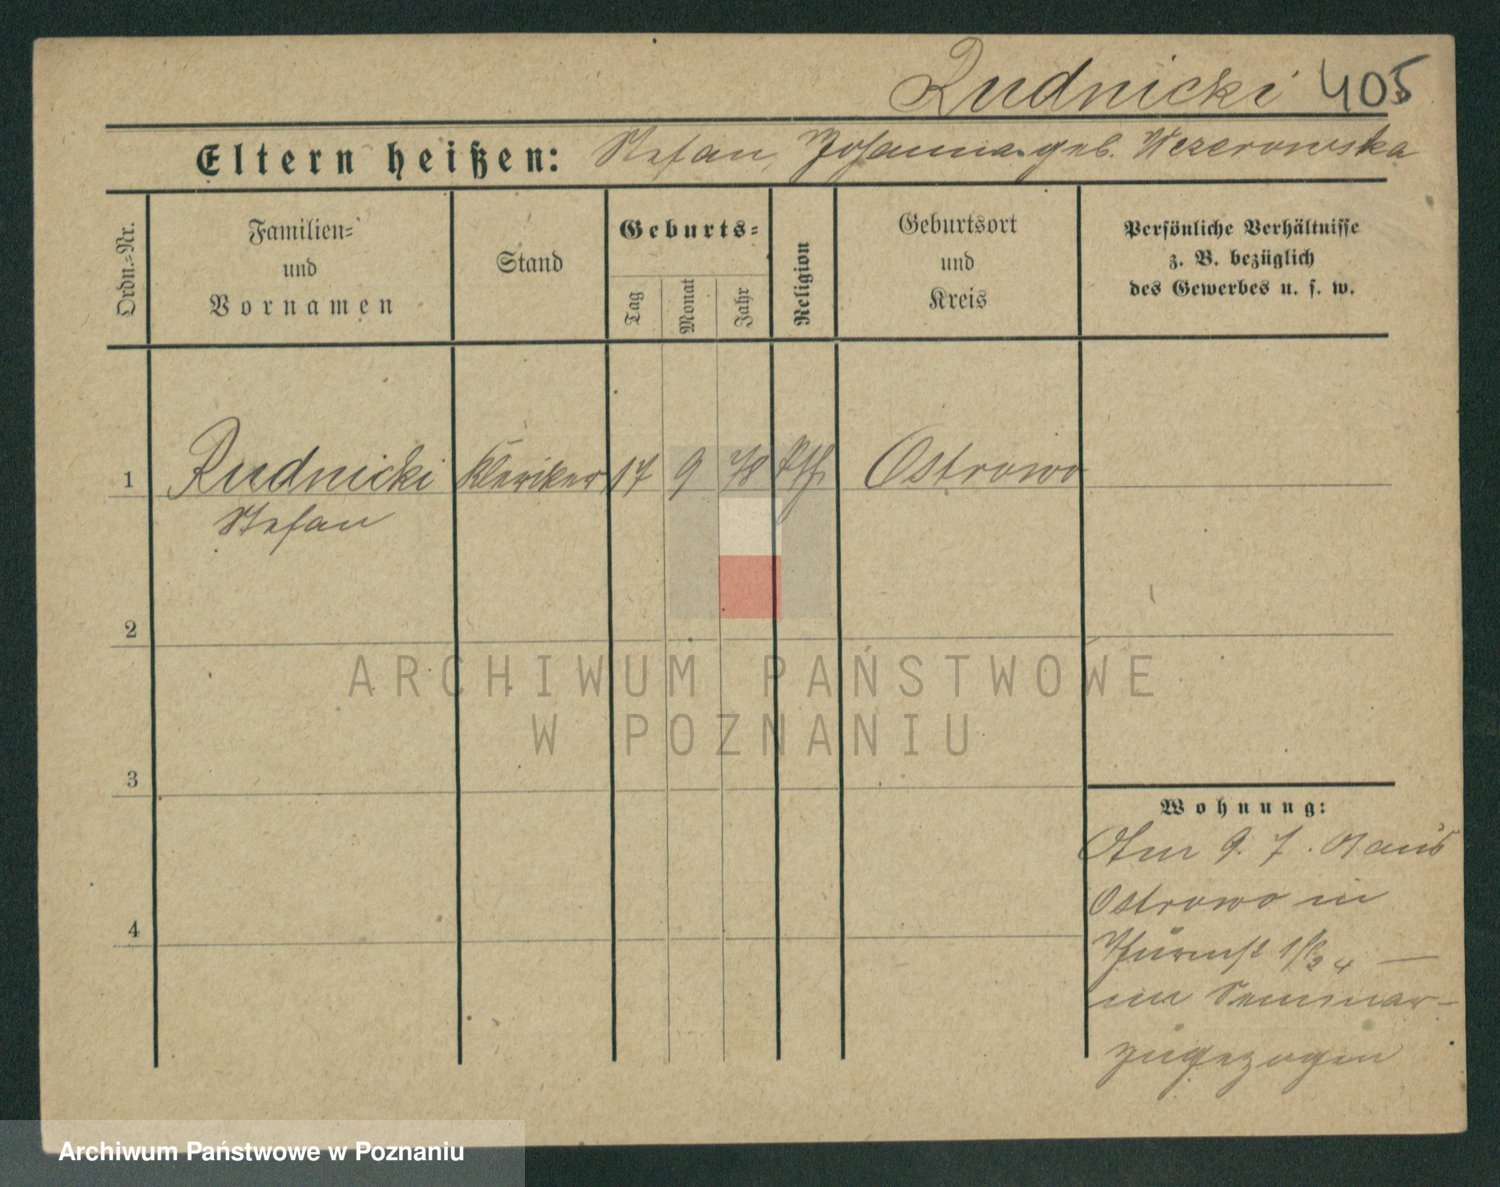 Rudnicki 405
Eltern heißen: Stefan, Johanna geb. Wezerowska
Ordn.=Nr.
Familien=
und
Vornamen
Stand
Geburts=
Tag
Monat
Jahr
Religion
Geburtsort
und
Kreis
Persönliche Verhältnisse
z. B. bezüglich
des Gewerbes u. s. w.
1 Rudnicki Kleriker 17 9 78 Kth. Ostrowo
Stefan
2
3
4
Wohnung:
Am 9. 7. aus
Ostrowo in
im Seminar
zugezogen
ARCHIWUM PAŃSTWOWE
W POZNANIU
Archiwum Państwowe w Poznaniu